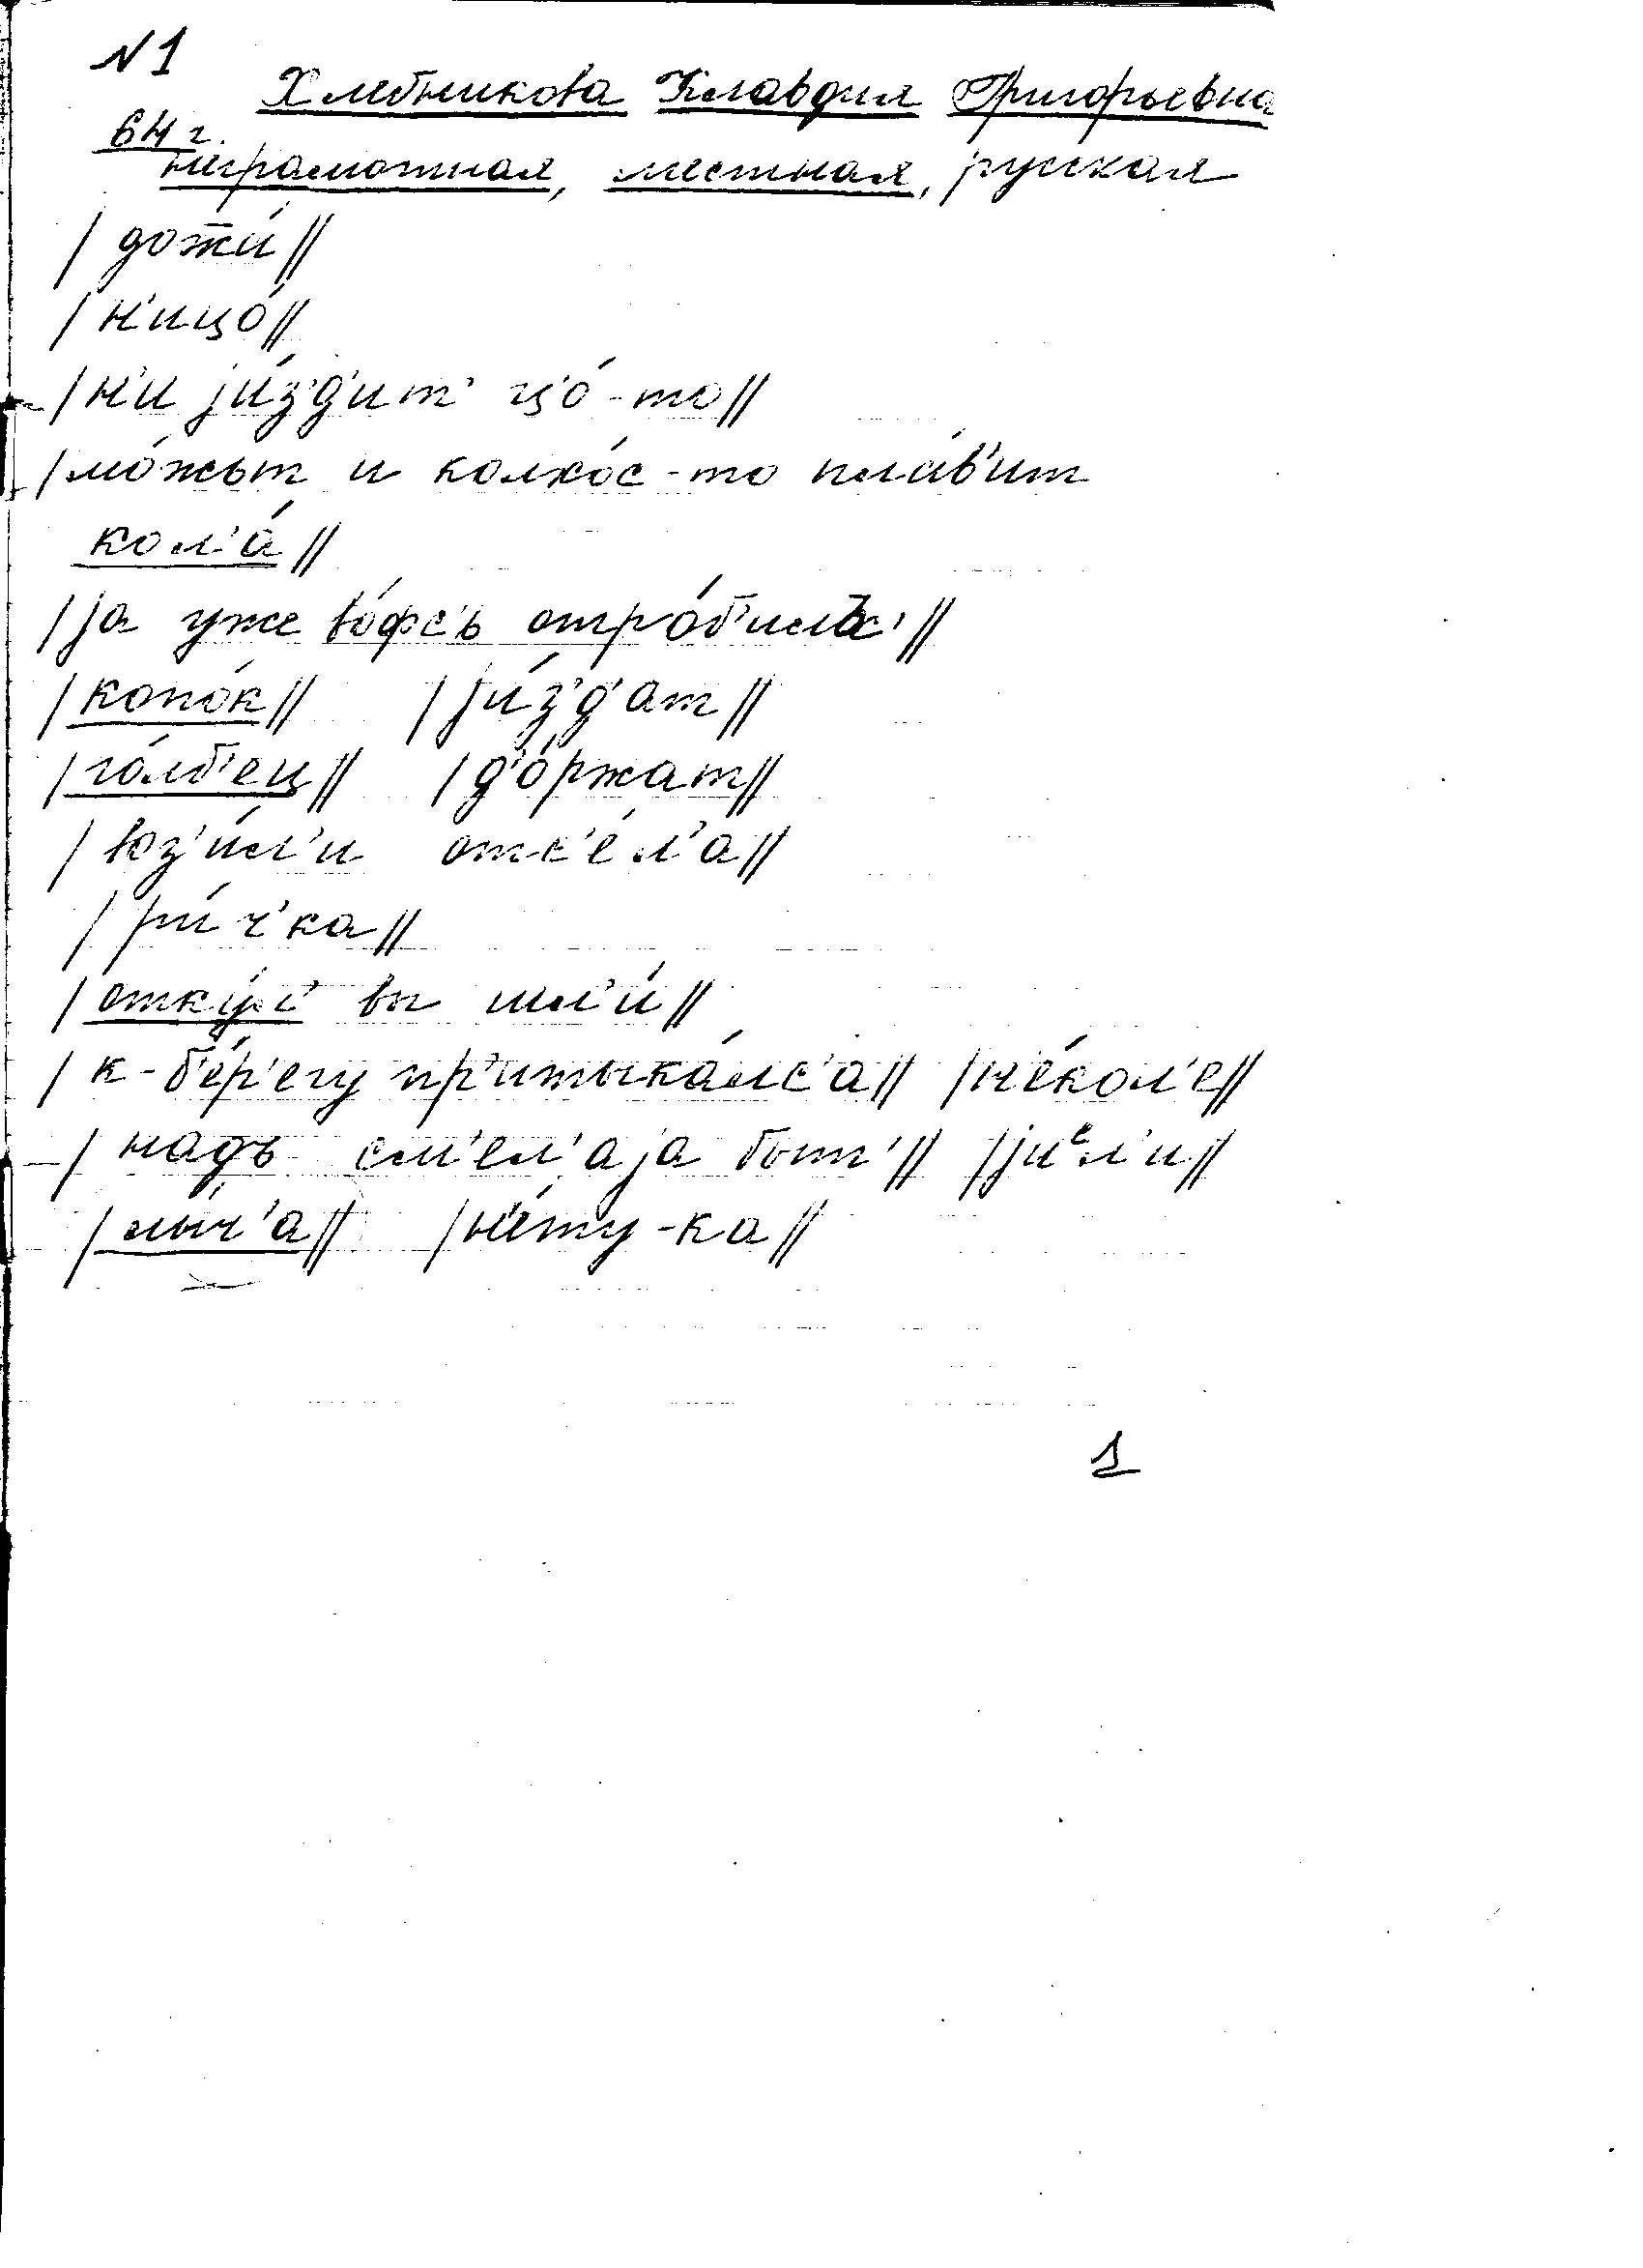 N 1
Хлебникова Клавдия Григорьевна
64 г.
неграмотная, местная, русская
| дож̅и́ ||
| н'ицо́ ||
| н'и jи́з'д'ит' цо́-то ||
| мо́жът и колхо́с-то пла́в'ит
кол'а́ ||
| jа уже во́фс'ь отро́б'илас' ||
| копо́к || | jи́з'д'ат ||
| го́лб'ец || | д'о́ржат ||
| воз'и́л'и отс'е́л'а ||
| ри́ч'ка ||
| отку́л' вы шл'и́ ||
| к-б'е́р'егу пр'итыка́лс'а || | н'е́кол'е ||
| надъ см'ел'аjа быт' || | jиᵉл'и ||
| лыч'а || | н'е́ту-ка ||
1